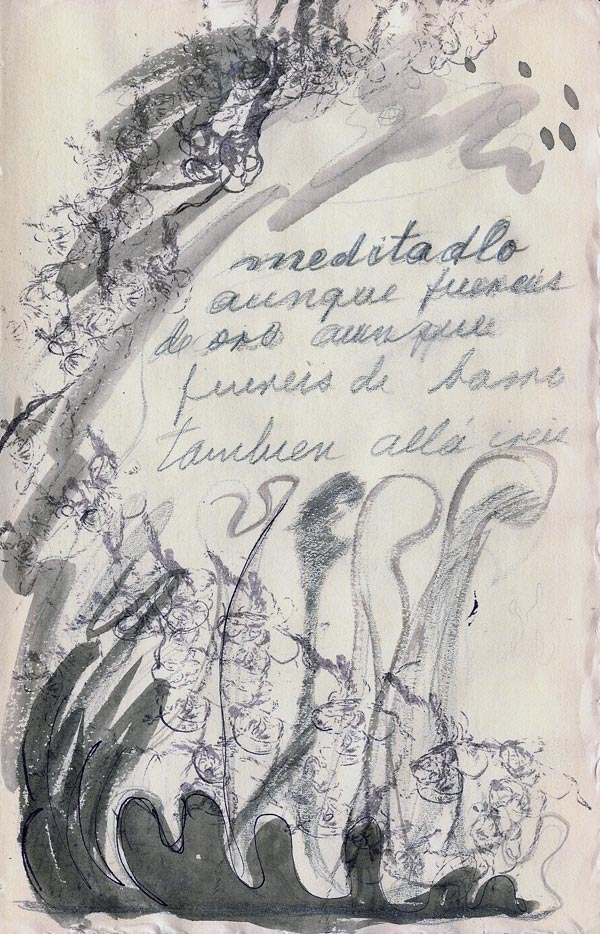 meditadlo
aunque fuereis
de oro aunque
fuereis de barro
tambien allá ireis